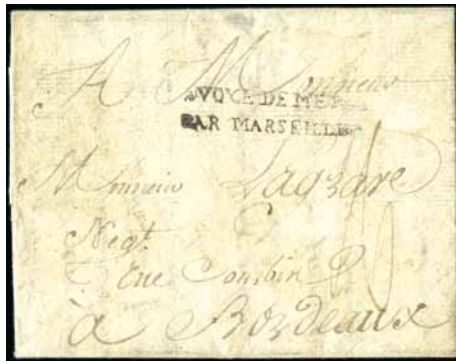 A Monsieur
DE MER
PAR MARSEILLE
Monsieur Lagzare
Negt.
Rue Courbin
à Bordeaux